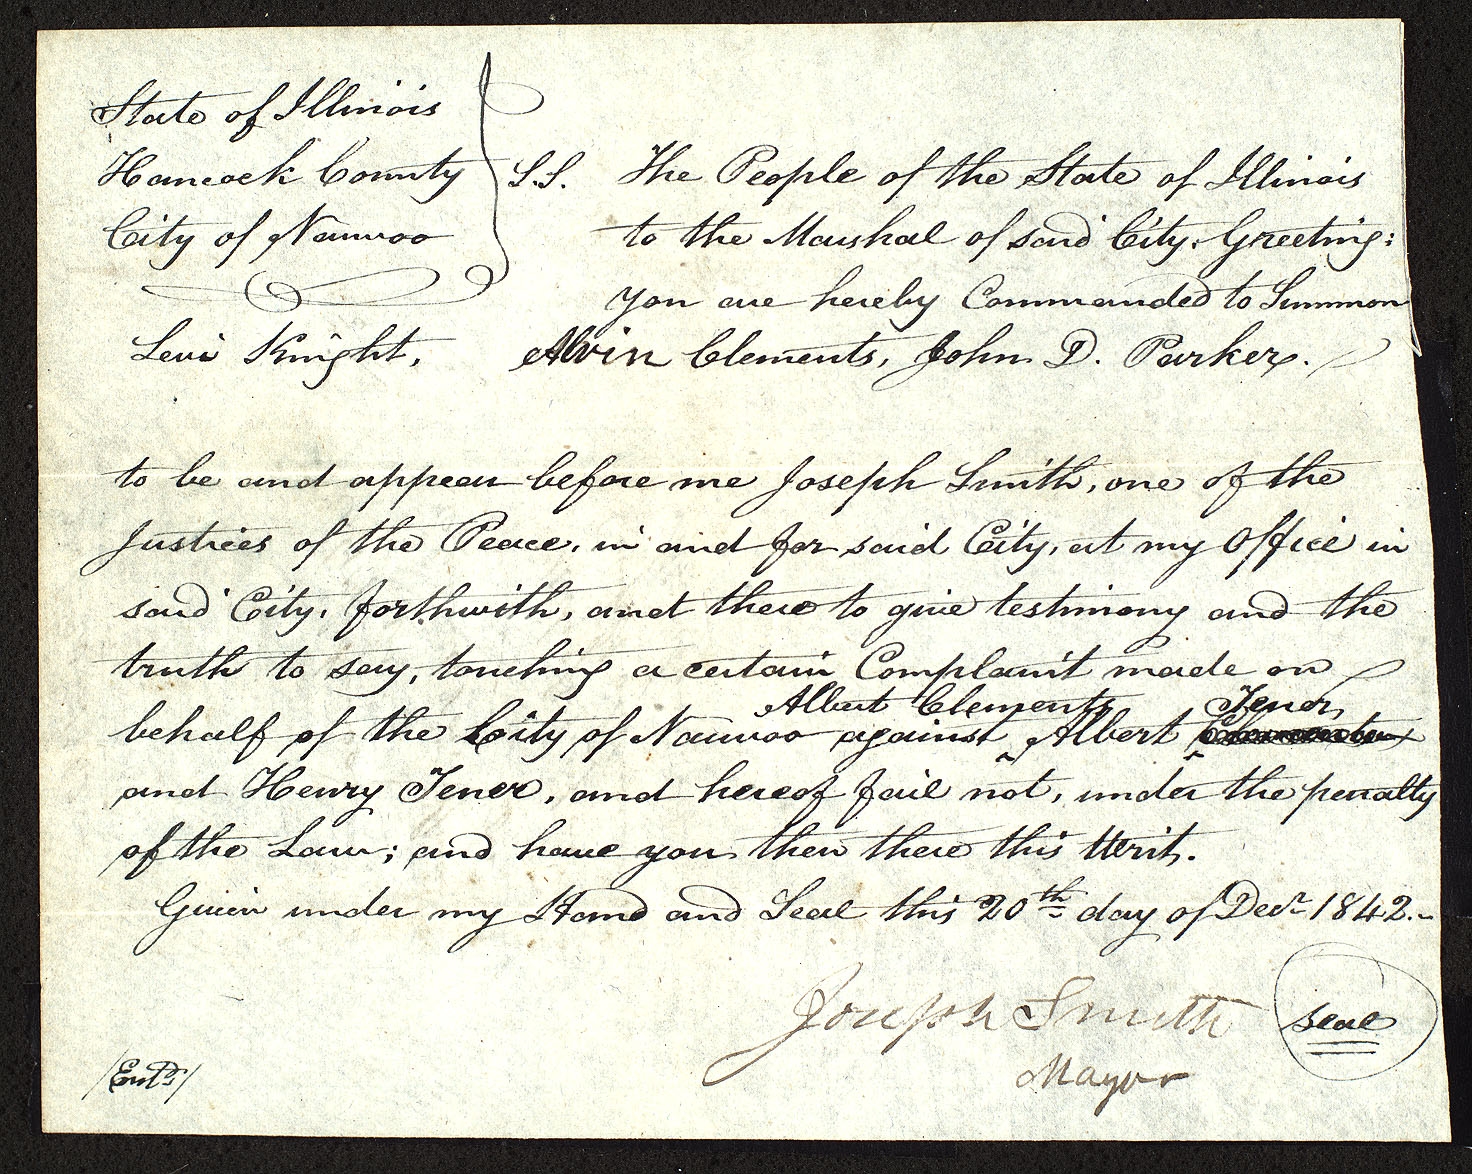 State of Illinois
Hancock County
City of Nauvoo
S.S.
The People of the State of Illinois
to the Marshal of said City. Greeting:
You are hereby Commanded to Summon
Levi Knight, Alvin Clements, John D. Parker.
to be and appear before me Joseph Smith, one of the
Justices of the Peace, in and for said City, at my Office in
said City, forthwith, and there to give testimony and the
truth to say, touching a certain Complaint made on
Albert Clements Tener,
behalf of the City of Nauvoo against ^ Albert ^ Clements
and Henry Tener, and hereof fail not, under the penalty
of the Law; and have you then there this Writ.
Given under my Hand and Seal this 20th day of Decr. 1842.
Joseph Smith
Mayor
seal
/Entd./